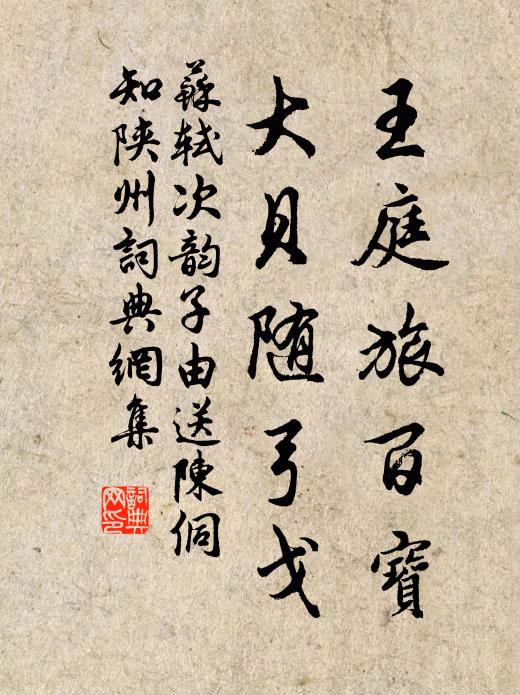 王庭旅百寶
大貝随弓戈
蘇軾次韵子由送陳侗
知陝州詞典網集
詞典
网印